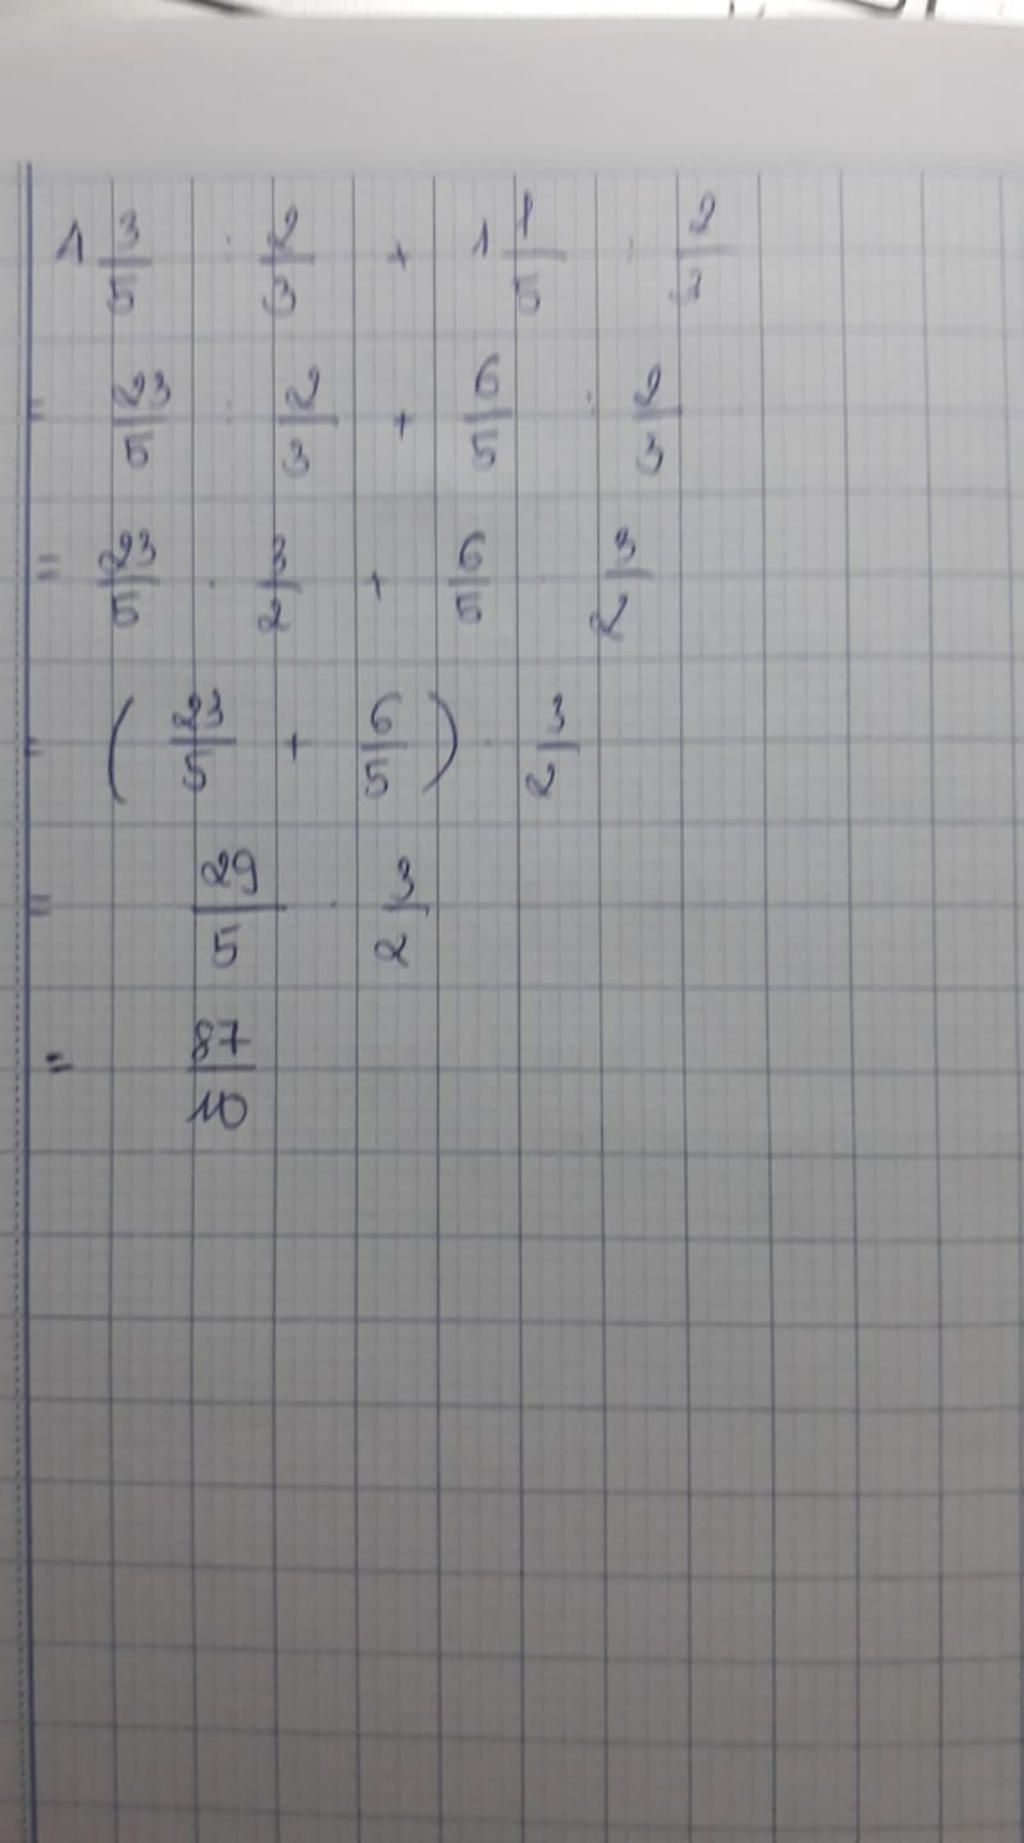 1 3/5 : 2/3 + 1 1/5 : 2/3
= 23/5 : 2/3 + 6/5 : 2/3
= 23/5 . 3/2 + 6/5 . 3/2
= ( 23/5 + 6/5 ) . 3/2
= 29/5 . 3/2
= 87/10